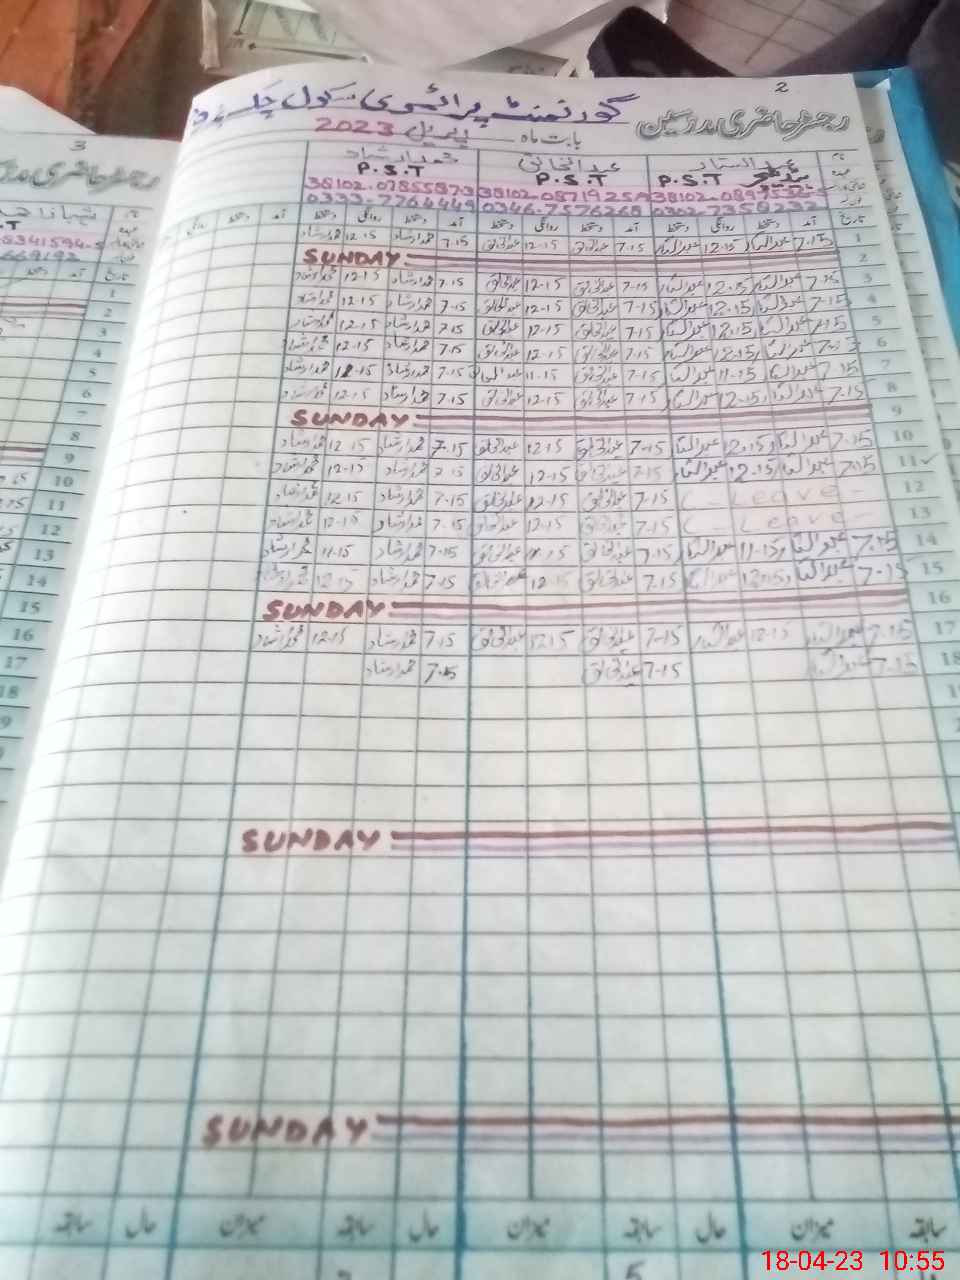 2
گورنمنٹ پرائمری سکول چک
رجسٹر حاضری مدرسین بابت ماہ اپریل 2023
نام عبدالستار عبدالخالق محمد ارشاد
عہدہ P.S.T ہیڈ ٹیچر P.S.T P.S.T
38102-0871925 38102-0785587-3
0302-7358232 0346-7576268 0333-7764449
تاریخ آمد دستخط روانگی دستخط آمد دستخط روانگی دستخط آمد دستخط روانگی دستخط آمد دستخط روانگی
1 7-15 عبدالستار 12-15 عبدالستار 7-15 عبدالخالق 12-15 عبدالخالق 7-15 محمد ارشاد 12-15 محمد ارشاد
2 SUNDAY
3 7-15 عبدالستار 12-15 عبدالستار 7-15 عبدالخالق 12-15 عبدالخالق 7-15 محمد ارشاد 12-15 محمد ارشاد
4 7-15 عبدالستار 12-15 عبدالستار 7-15 عبدالخالق 12-15 عبدالخالق 7-15 محمد ارشاد 12-15 محمد ارشاد
5 7-15 عبدالستار 12-15 عبدالستار 7-15 عبدالخالق 12-15 عبدالخالق 7-15 محمد ارشاد 12-15 محمد ارشاد
6 7-15 عبدالستار 12-15 عبدالستار 7-15 عبدالخالق 12-15 عبدالخالق 7-15 محمد ارشاد 12-15 محمد ارشاد
7 7-15 عبدالستار 11-15 عبدالستار 7-15 عبدالخالق 11-15 عبدالخالق 7-15 محمد ارشاد 12-15 محمد ارشاد
8 7-15 عبدالستار 12-15 عبدالستار 7-15 عبدالخالق 12-15 عبدالخالق 7-15 محمد ارشاد 12-15 محمد ارشاد
9 SUNDAY
10 7-15 عبدالستار 12-15 عبدالستار 7-15 عبدالخالق 12-15 عبدالخالق 7-15 محمد ارشاد 12-15 محمد ارشاد
11 7-15 عبدالستار 12-15 عبدالستار 7-15 عبدالخالق 12-15 عبدالخالق 7-15 محمد ارشاد 12-15 محمد ارشاد
12 C - Leave - 7-15 عبدالخالق 12-15 عبدالخالق 7-15 محمد ارشاد 12-15 محمد ارشاد
13 C - Leave - 7-15 عبدالخالق 12-15 عبدالخالق 7-15 محمد ارشاد 12-15 محمد ارشاد
14 7-15 عبدالستار 11-15 عبدالستار 7-15 عبدالخالق 11-15 عبدالخالق 7-15 محمد ارشاد 11-15 محمد ارشاد
15 7-15 عبدالستار 12-15 عبدالستار 7-15 عبدالخالق 12-15 عبدالخالق 7-15 محمد ارشاد 12-15 محمد ارشاد
16 SUNDAY
17 7-15 عبدالستار 12-15 عبدالستار 7-15 عبدالخالق 12-15 عبدالخالق 7-15 محمد ارشاد 12-15 محمد ارشاد
18 7-15 عبدالستار 7-15 عبدالخالق 7-15 محمد ارشاد
SUNDAY
SUNDAY
سابقہ میزان حال سابقہ میزان حال سابقہ میزان حال سابقہ
5
3
رجسٹر حاضری
نام
تاریخ
1
2
3
4
5
6
7
8
9
10
11
12
13
14
15
16
17
18
18-04-23 10:55